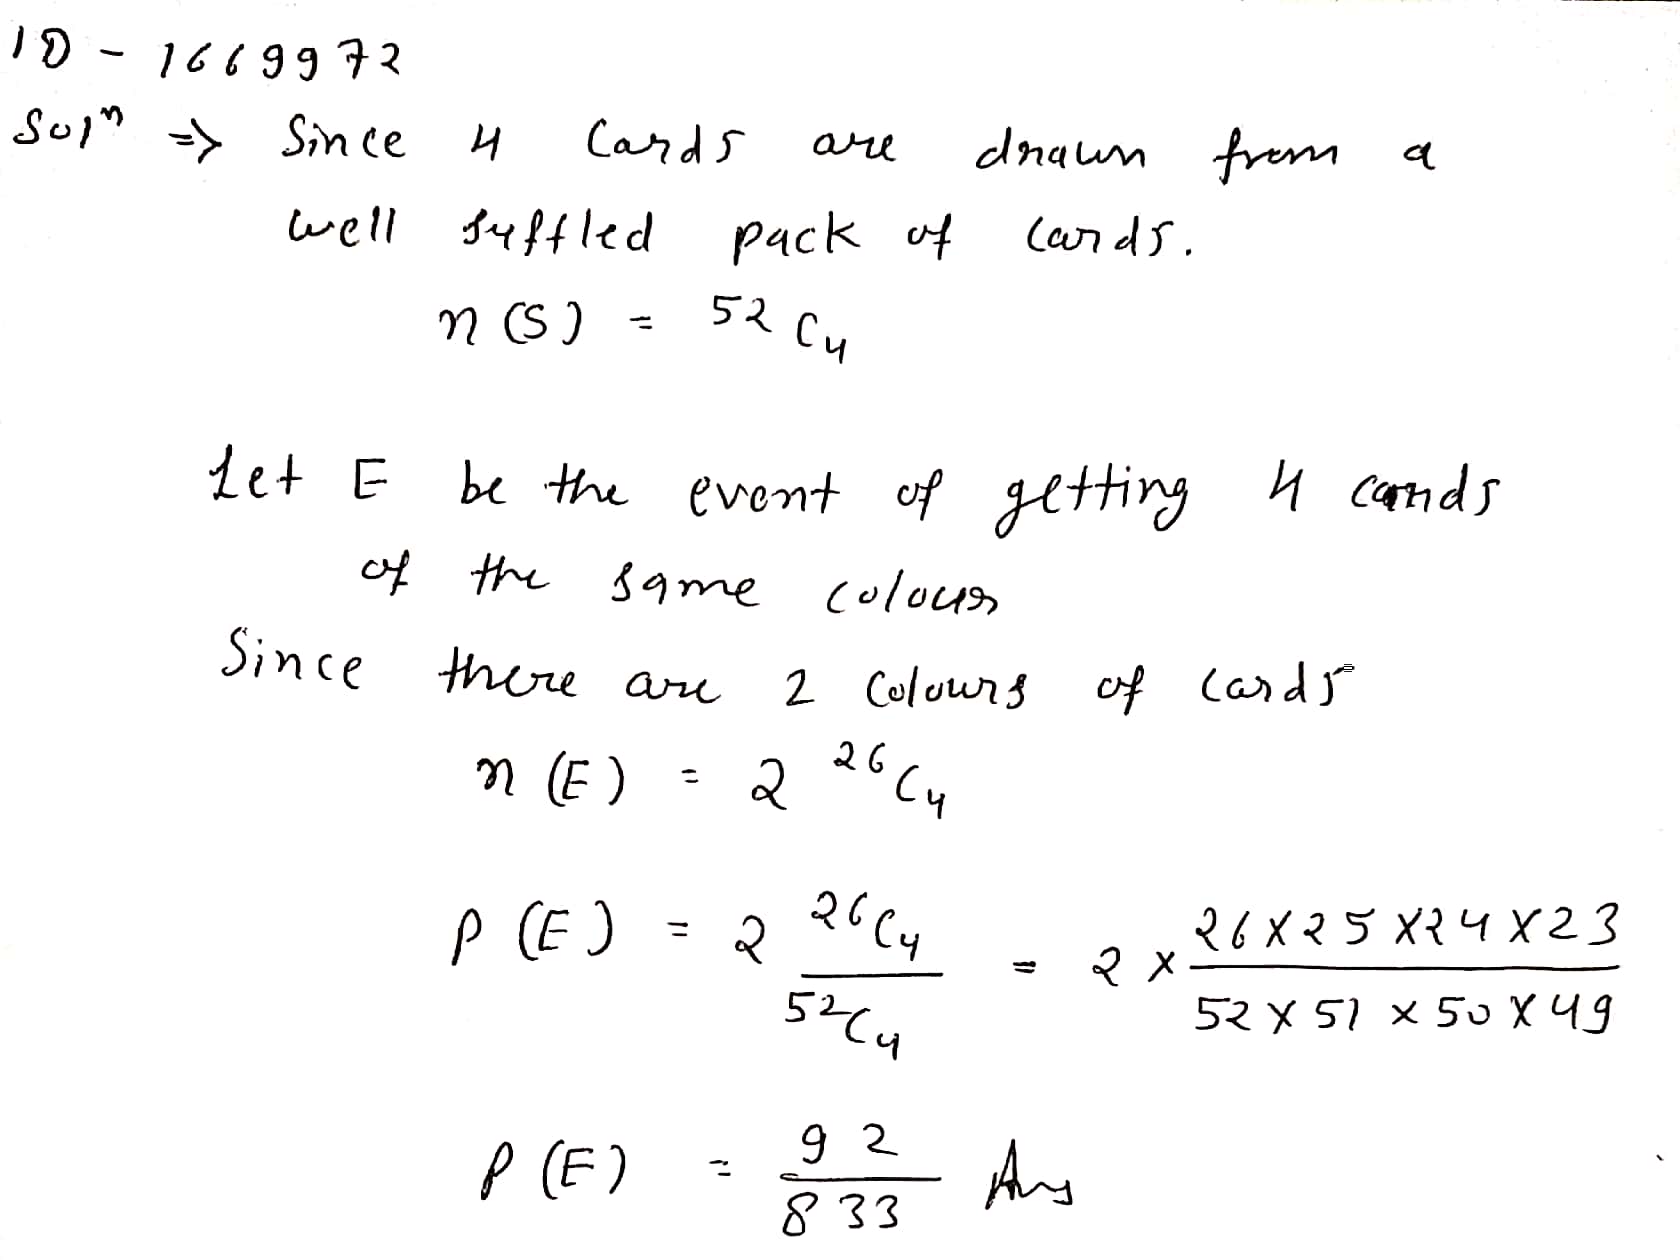 ID - 1669972
Solⁿ => Since 4 Cards are drawn from a
well suffled pack of cards.
n(S) = 52 C₄
Let E be the event of getting 4 cards
of the same colour
Since there are 2 Colours of cards
n(E) = 2 ²⁶C₄
P(E) = 2 ²⁶C₄ / ⁵²C₄ = 2 × 26×25×24×23 / 52×51×50×49
P(E) = 92 / 833 Ans